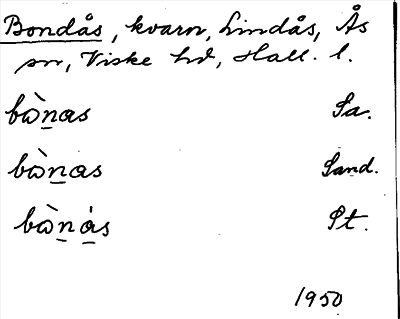 Bondås, kvarn, Lindås, Ås
sn, Viske hd, Hall. l.
bὼn̲as Sa.
bὼn̲as Sand.
bὼn̲a̲s St.
1950